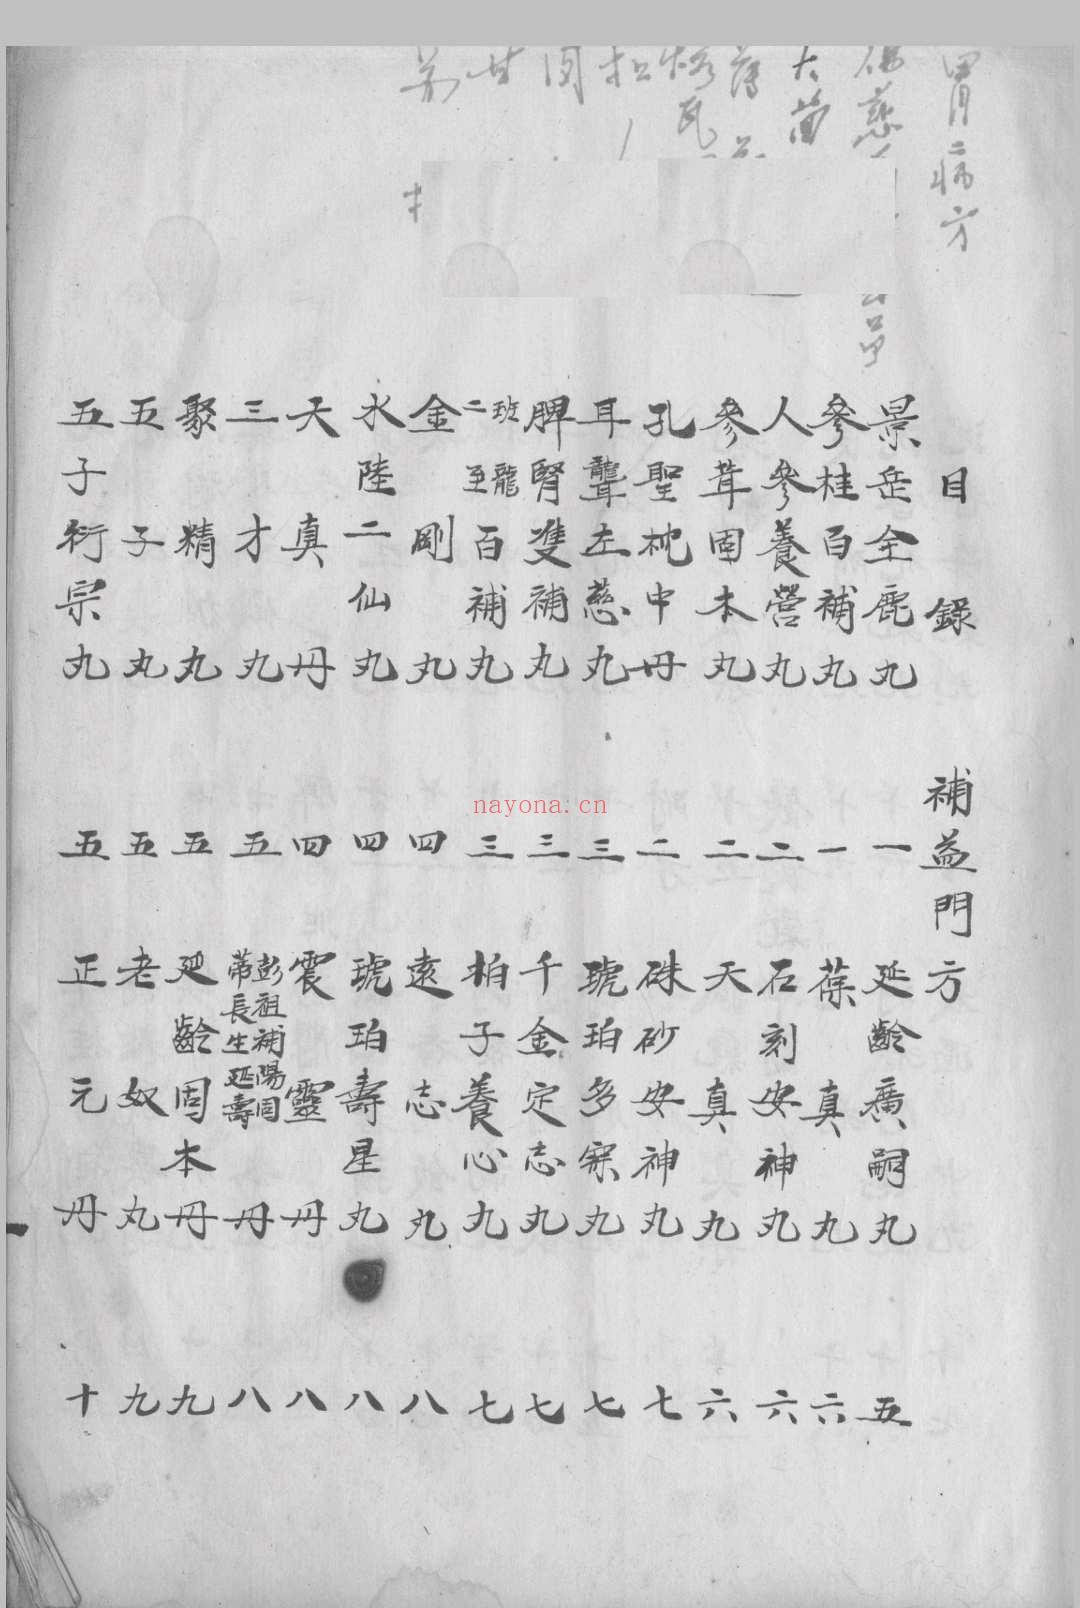 胃病方
目錄
補益門方
景岳全鹿丸 一
參桂百補丸 一
人參養營丸 二
參茸固本丸 二
孔聖枕中丹 二
耳聾左慈丸 三
脾腎雙補丸 三
班龍二至百補丸 三
金剛丸 四
水陸二仙丸 四
天真丹 四
三才丸 五
聚精丸 五
五子丸 五
五子衍宗丸 五
延齡廣嗣丸 五
葆真丸 六
石刻安神丸 六
天真丸 六
硃砂安神丸 七
琥珀多寐丸 七
千金定志丸 七
柏子養心丸 七
遠志丸 八
琥珀壽星丸 八
震靈丹 八
彭祖補陽固蒂長生延壽丹 八
延齡固本丹 九
老奴丸 九
正元丹 十
nayona.cn